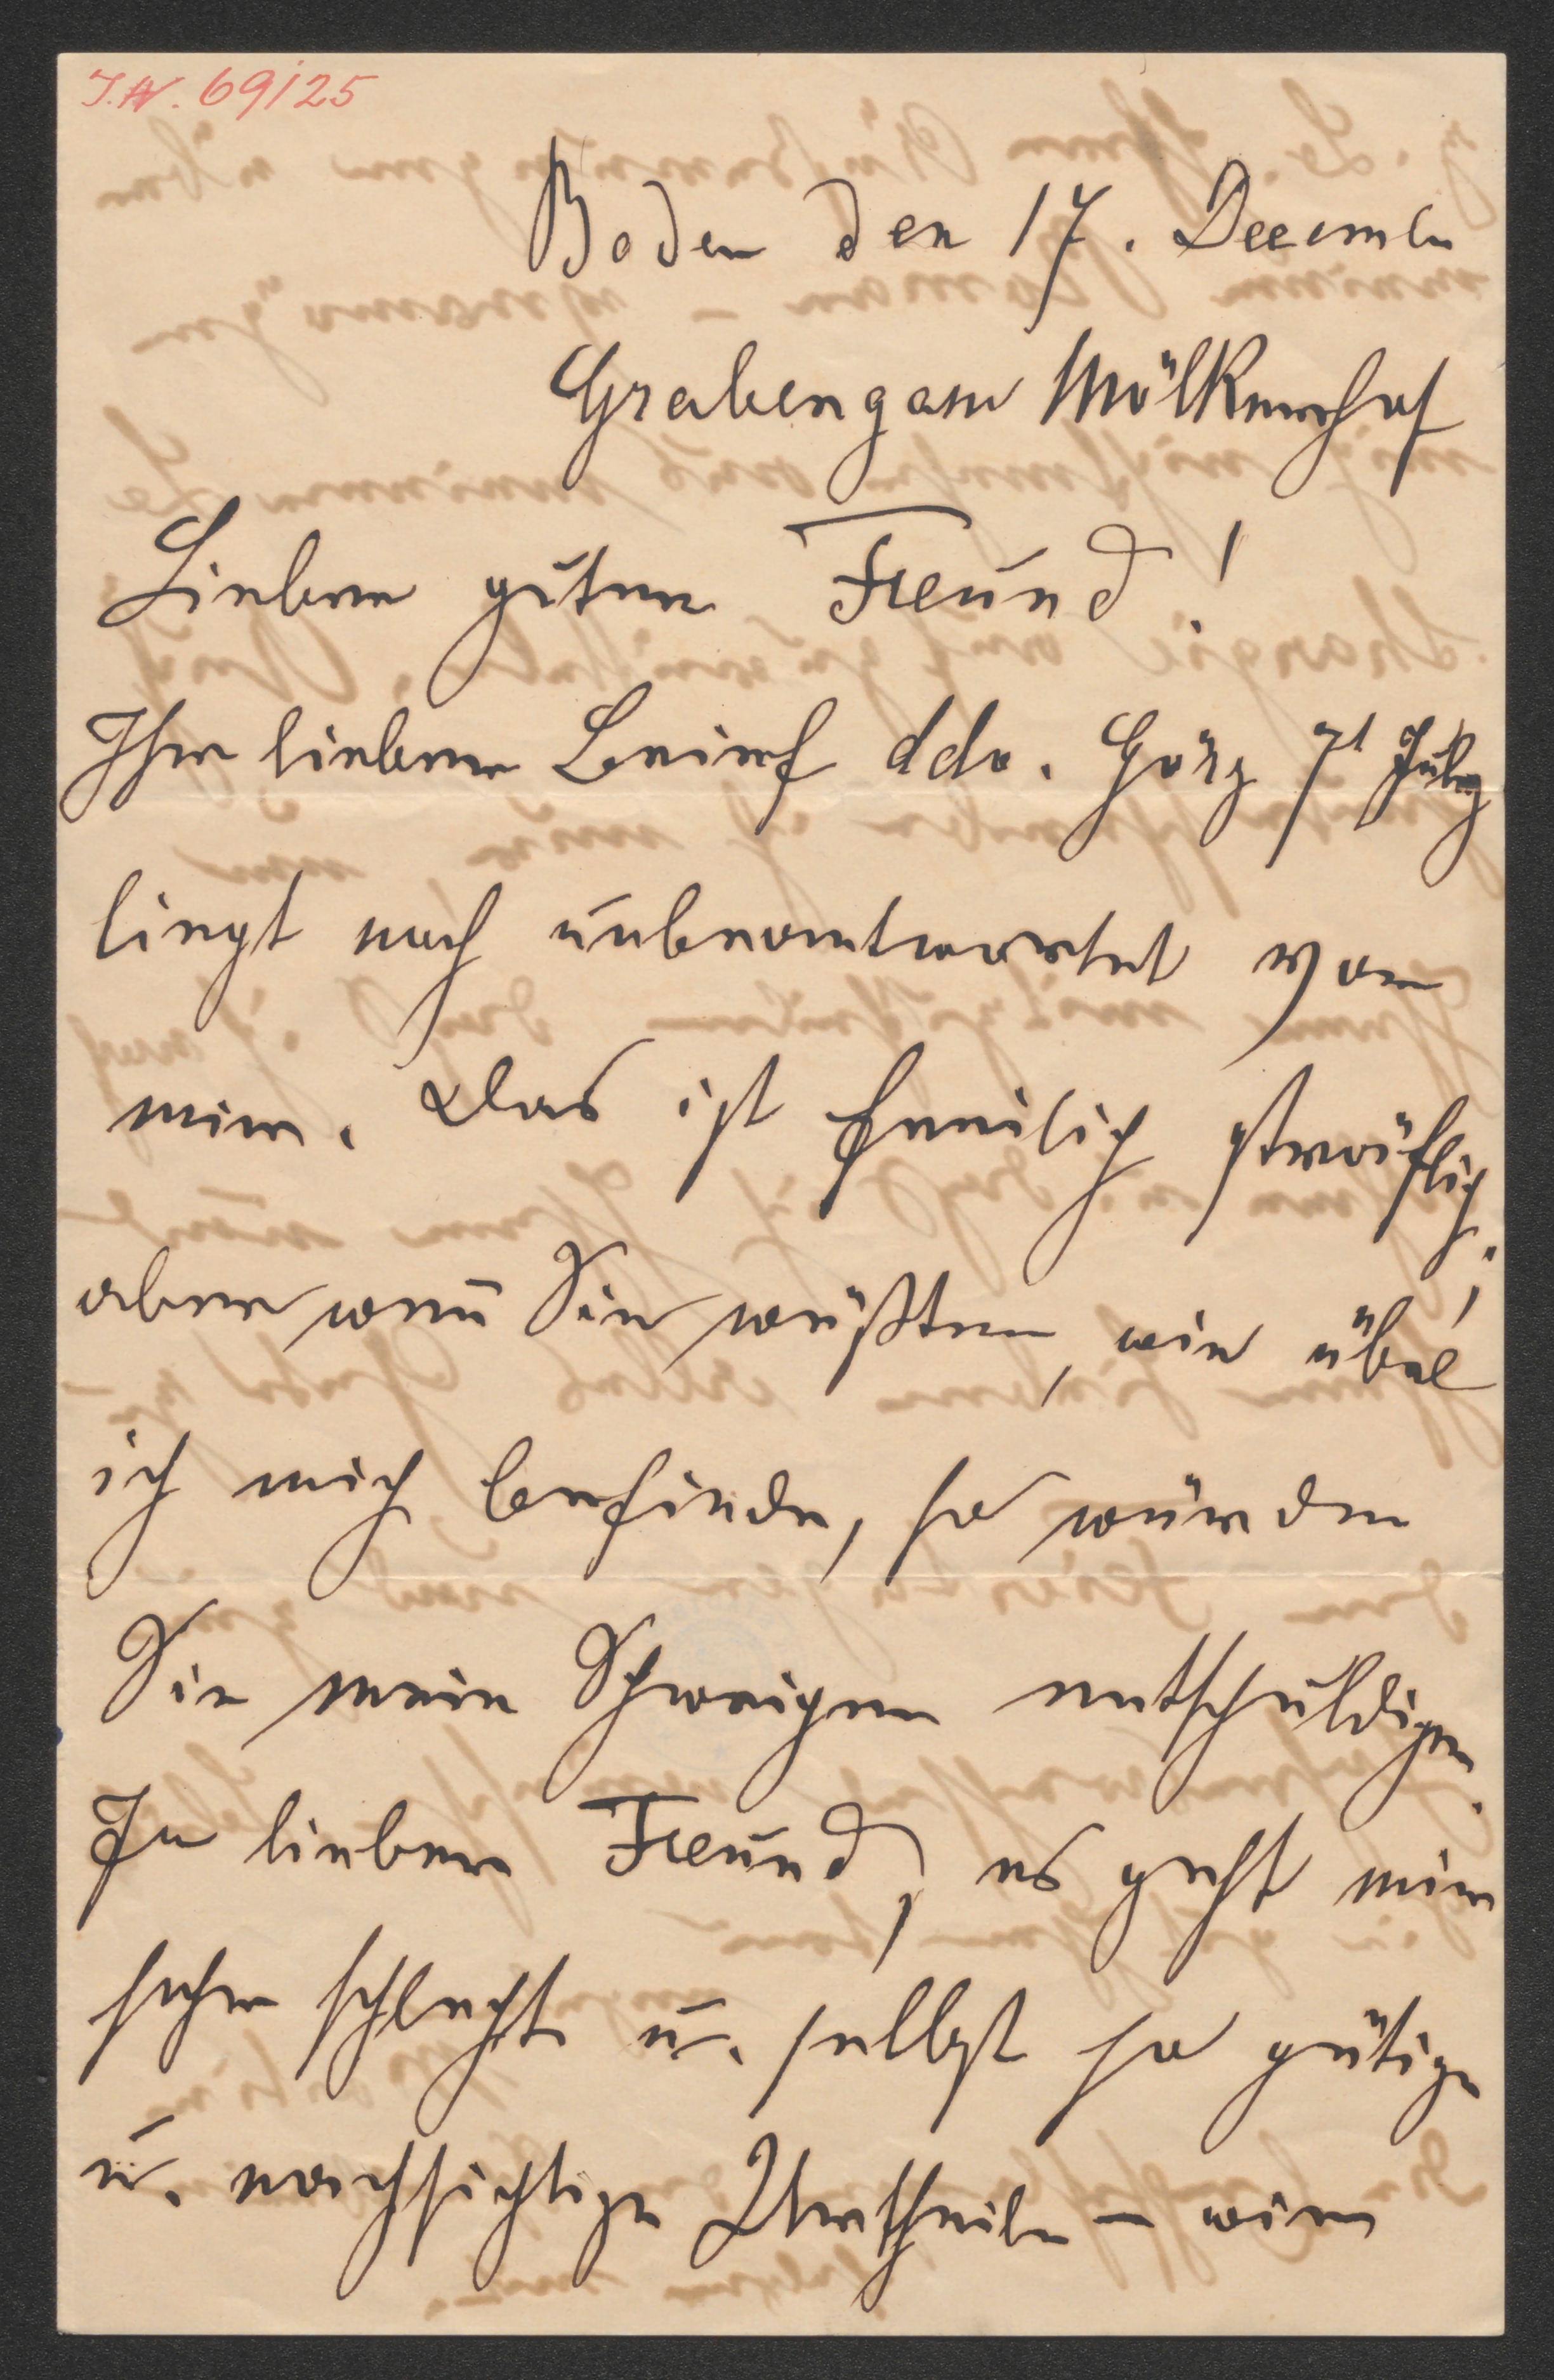 J.N. 69125
Baden den 17. Decembr
Grabengasse Mölkerhof
Lieber guter Freund!
Ihr lieber Brief ddo. Görz 7t July
liegt noch unbeantwortet vor
mir. Das ist freilich sträflich.
aber wenn Sie wüßten, wie übel
ich mich befinde, so würden
Sie mein Schweigen entschuldigen.
Ja lieber Freund, es geht mir
sehr schlecht u. selbst so gütige
u. nachsichtige Urtheile – wie